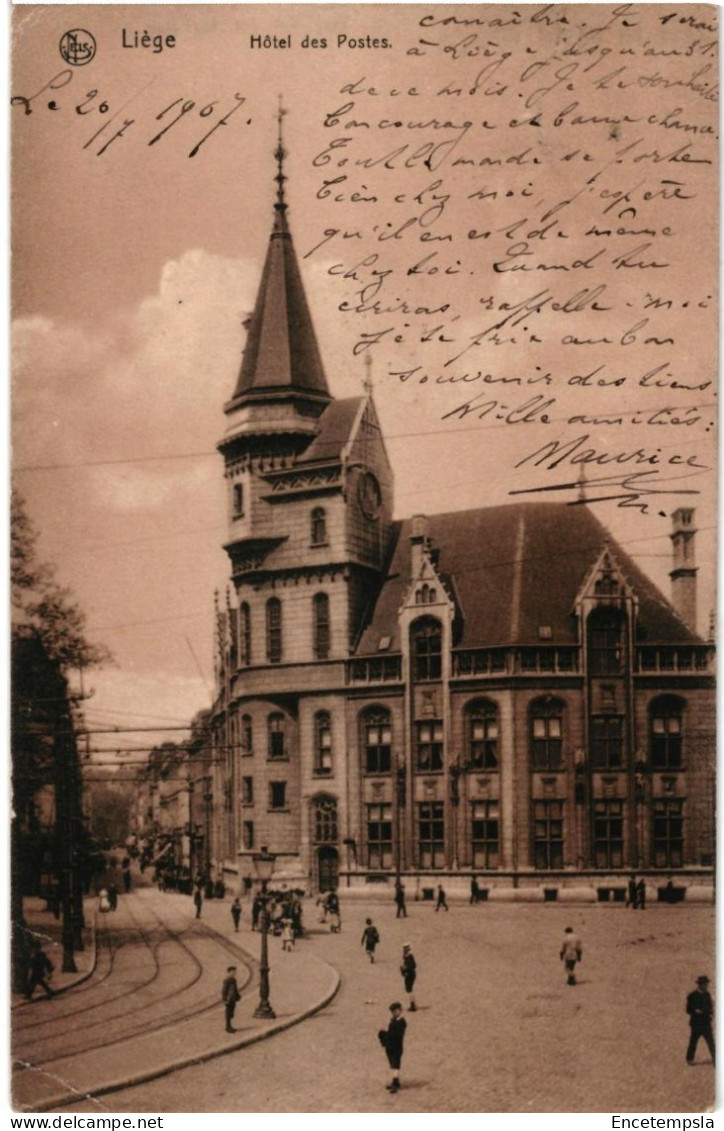 NELS
Liège
Hôtel des Postes.
Le 20/7 1907.
connaître. Je serai
à Liège jusqu'au 31
de ce mois. Je te souhaite
bon courage et bonne chance.
Tout le monde se porte
bien chez moi, j'espère
qu'il en est de même
chez toi. Quand tu
écriras, rappelle-moi
je te prie au bon
souvenir des tiens.
Mille amitiés:
Maurice
Encetempsla.com